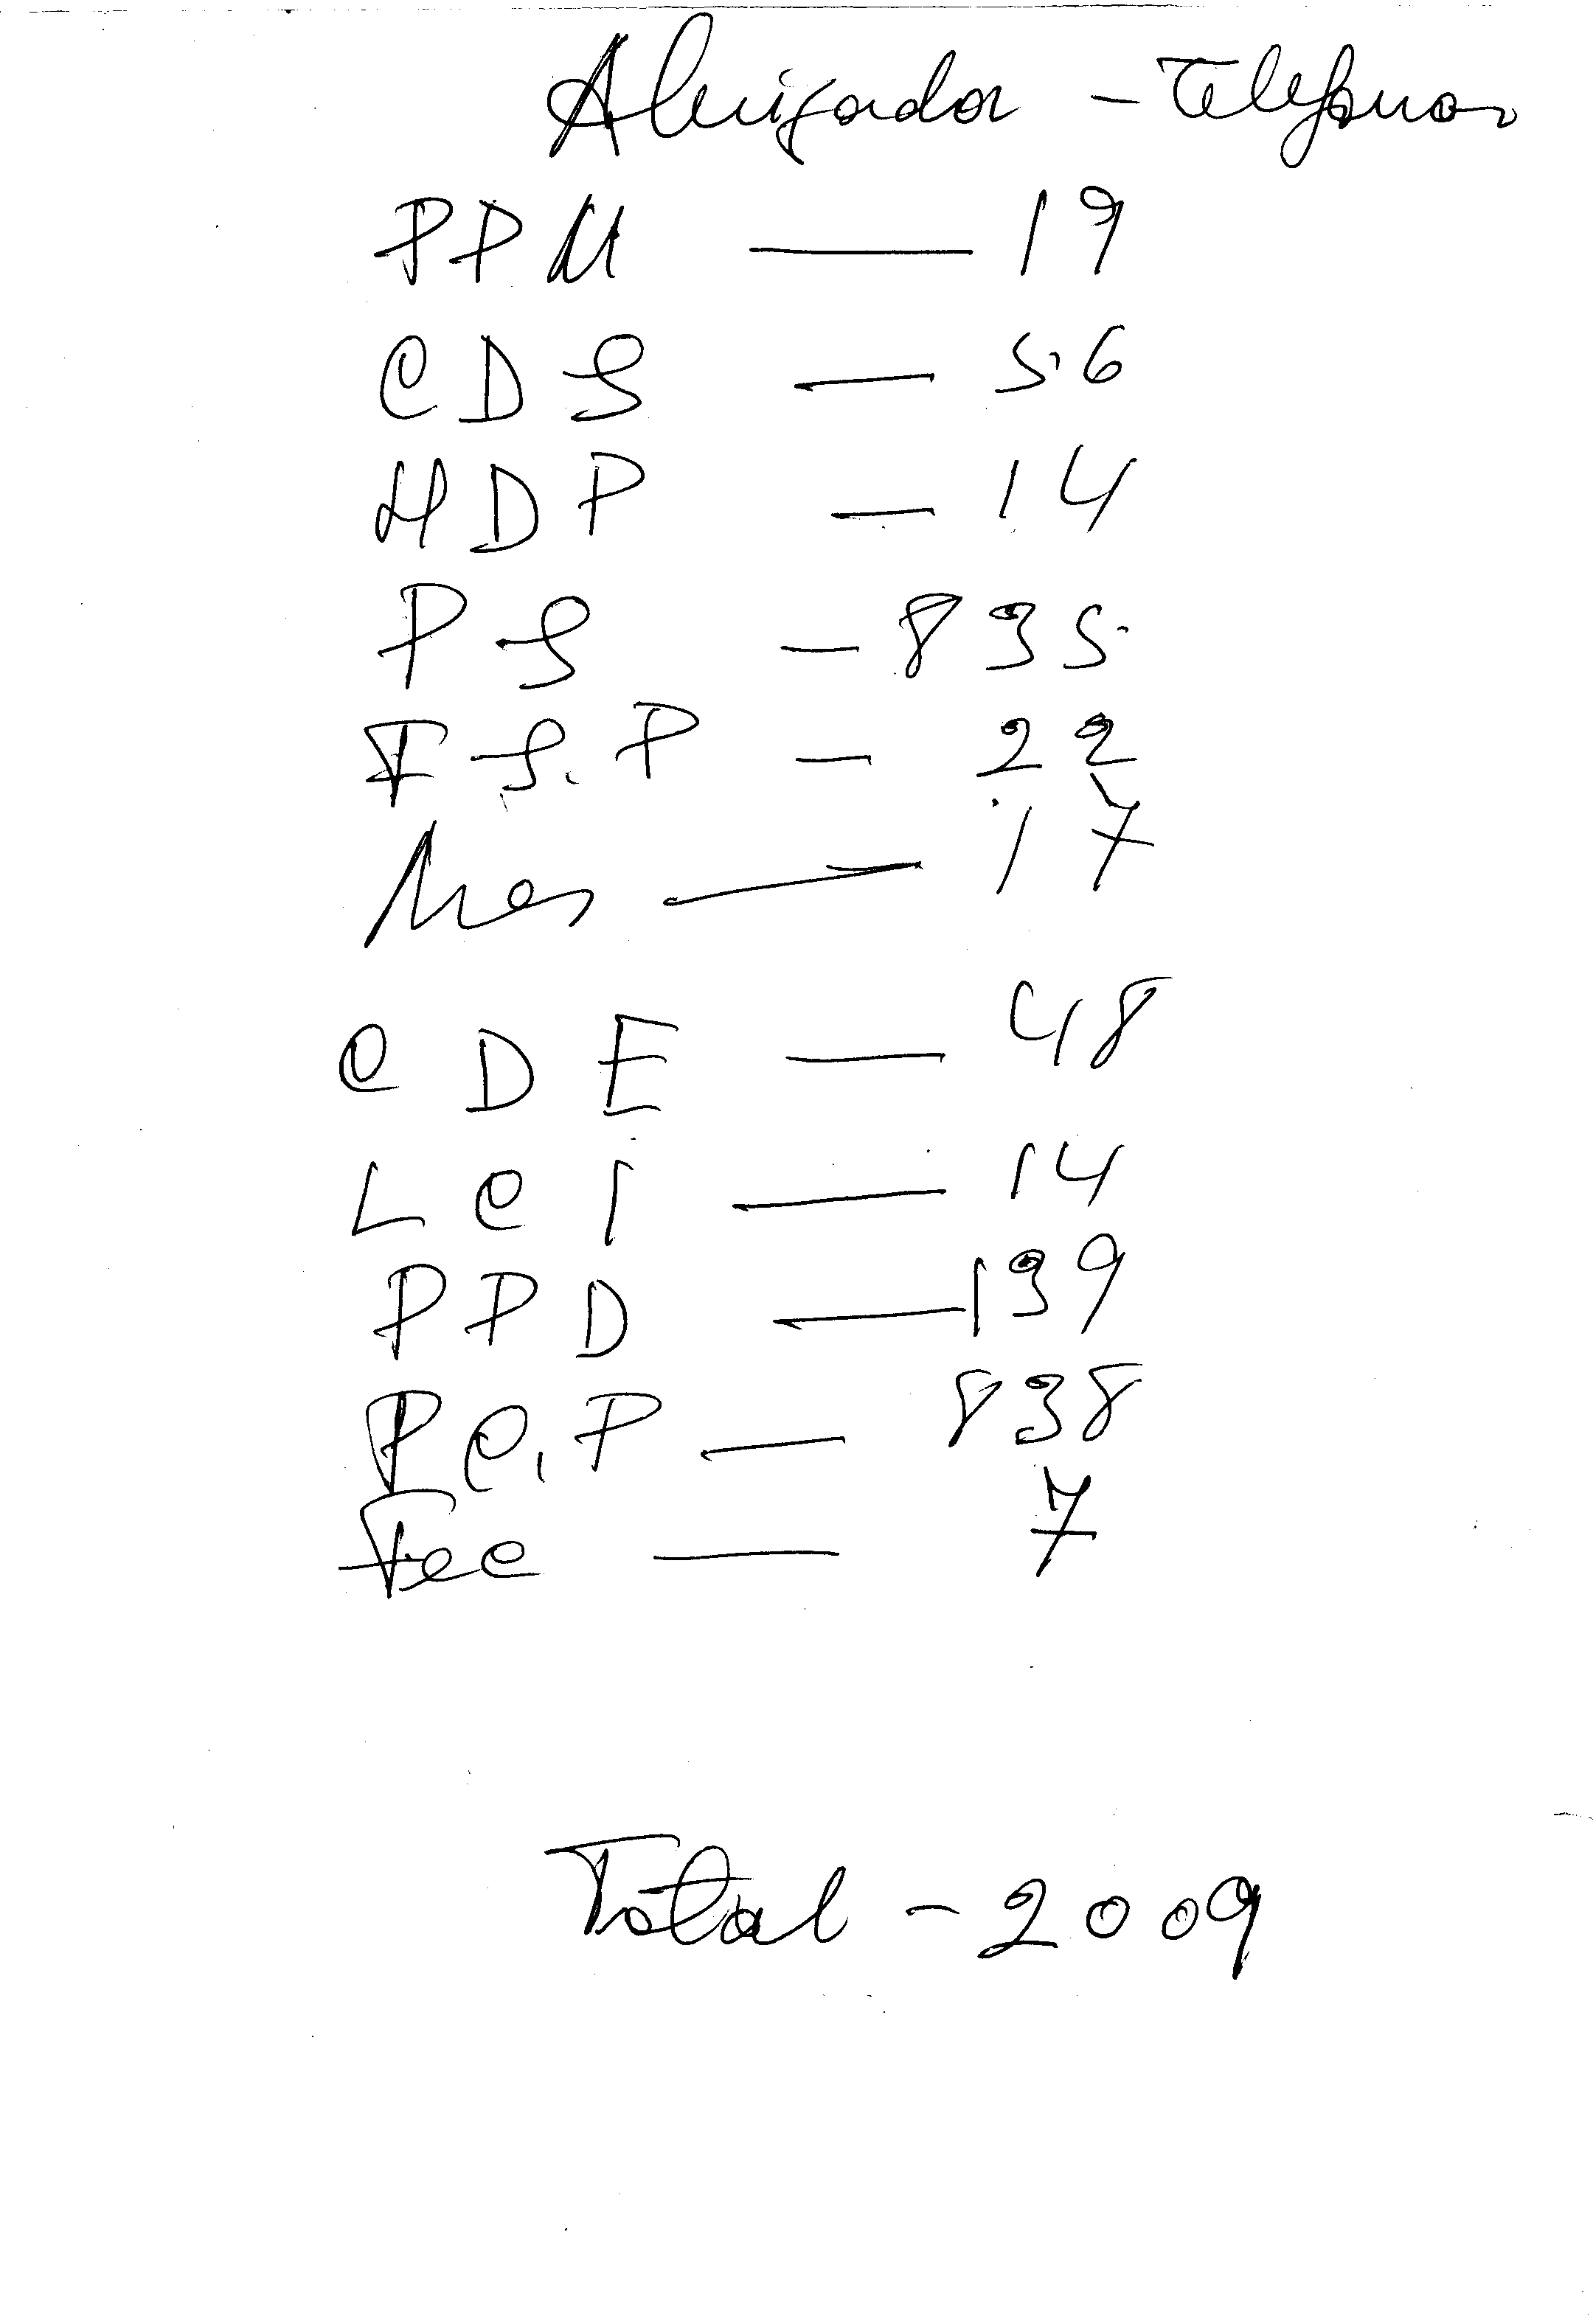 Abrigada - Telefonos
PPM — 19
CDS — 56
MDP — 14
PS — 835
FSP — 22
Mes — 17
CDE — 48
LCI — 14
PPD — 139
PC.P — 838
Fec — 7
Total - 2009